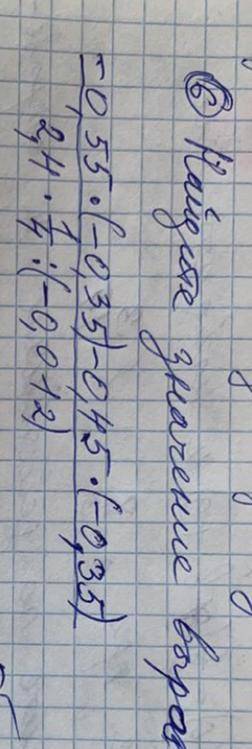 ⑥ Найдите значение выраж
-0,55·(-0,35)-0,45·(-0,35)
2,4·1/4:(-0,012)